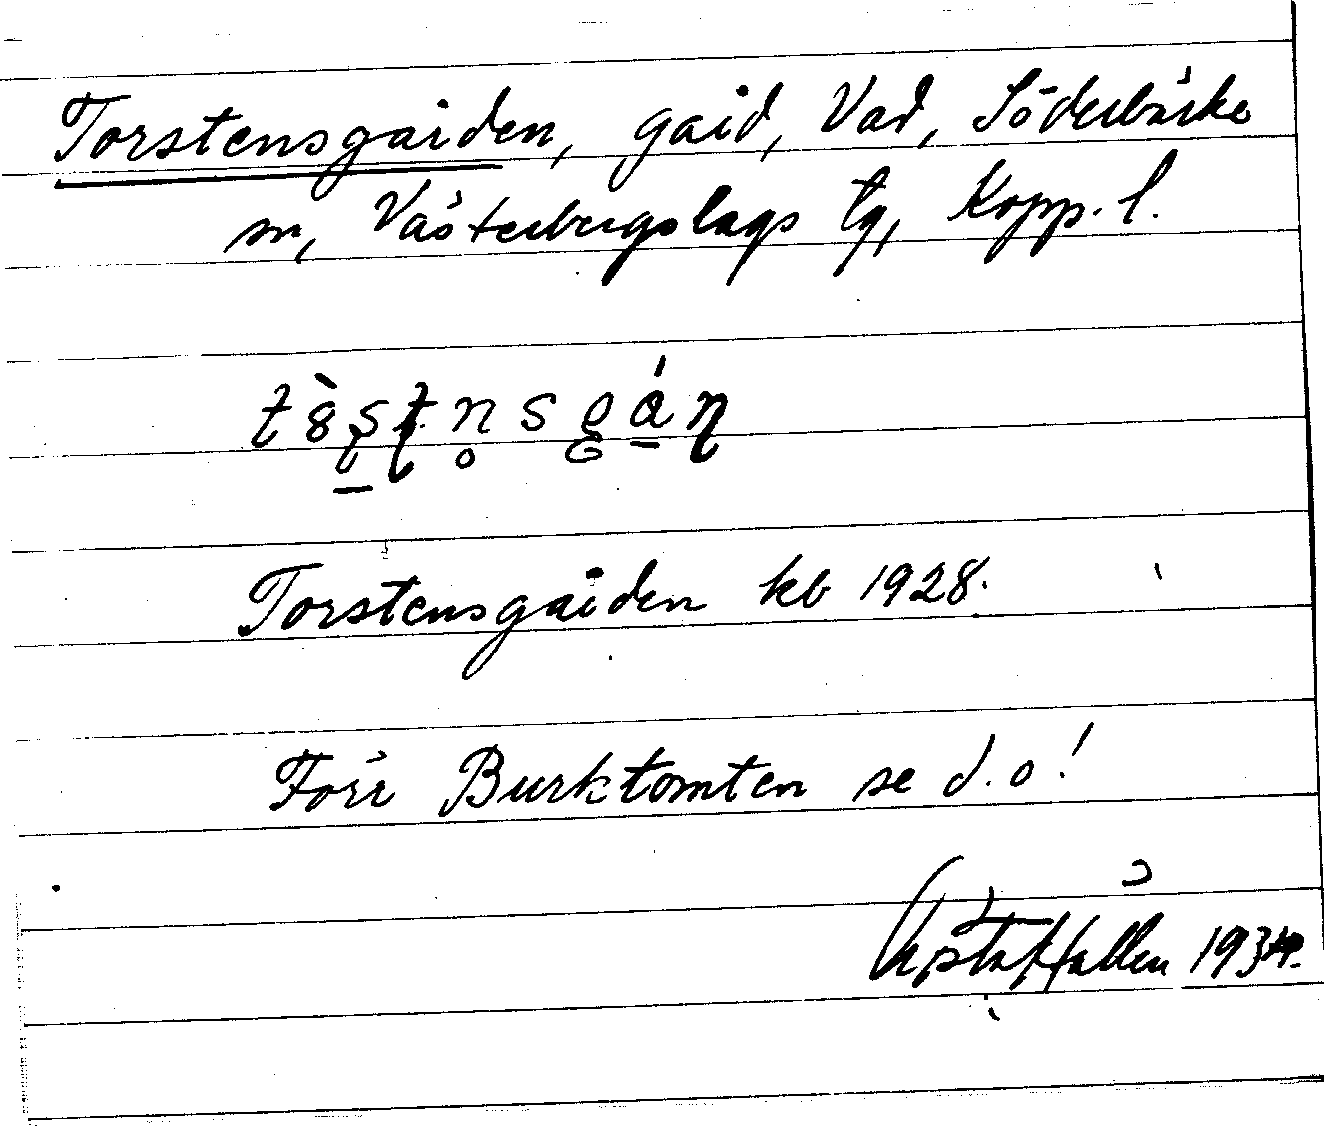 Torstensgården, gård, Vad, Söderbärke
sn, Västerbergslags tg, Kopp. l.
Torstensgården kb 1928.
Förr Burktomten se d. o!
Hållén 1934.